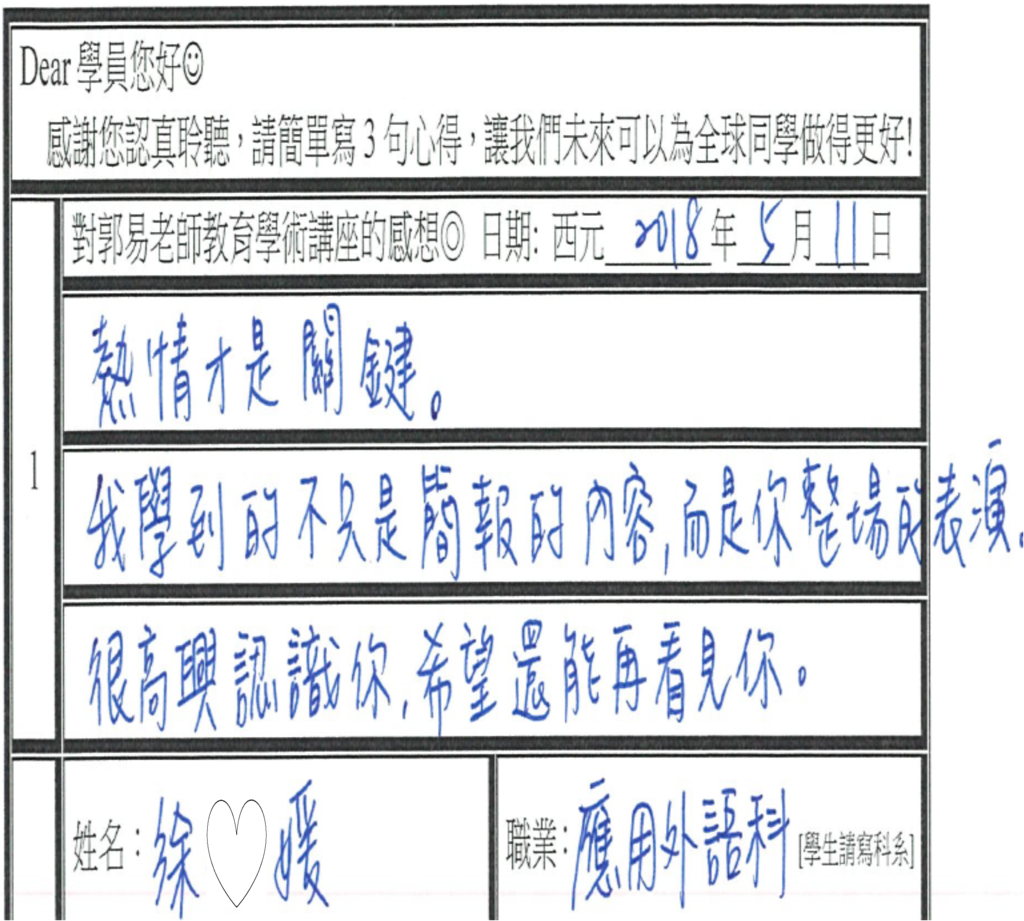 Dear 學員您好☺
感謝您認真聆聽，請簡單寫 3 句心得，讓我們未來可以為全球同學做得更好!
對郭易老師教育學術講座的感想◎ 日期: 西元 2018 年 5 月 11 日
熱情才是關鍵。
1
我學到的不只是簡報的內容,而是你整場的表演.
很高興認識你,希望還能再看見你。
姓名：徐♡媛
職業：應用外語科 [學生請寫科系]